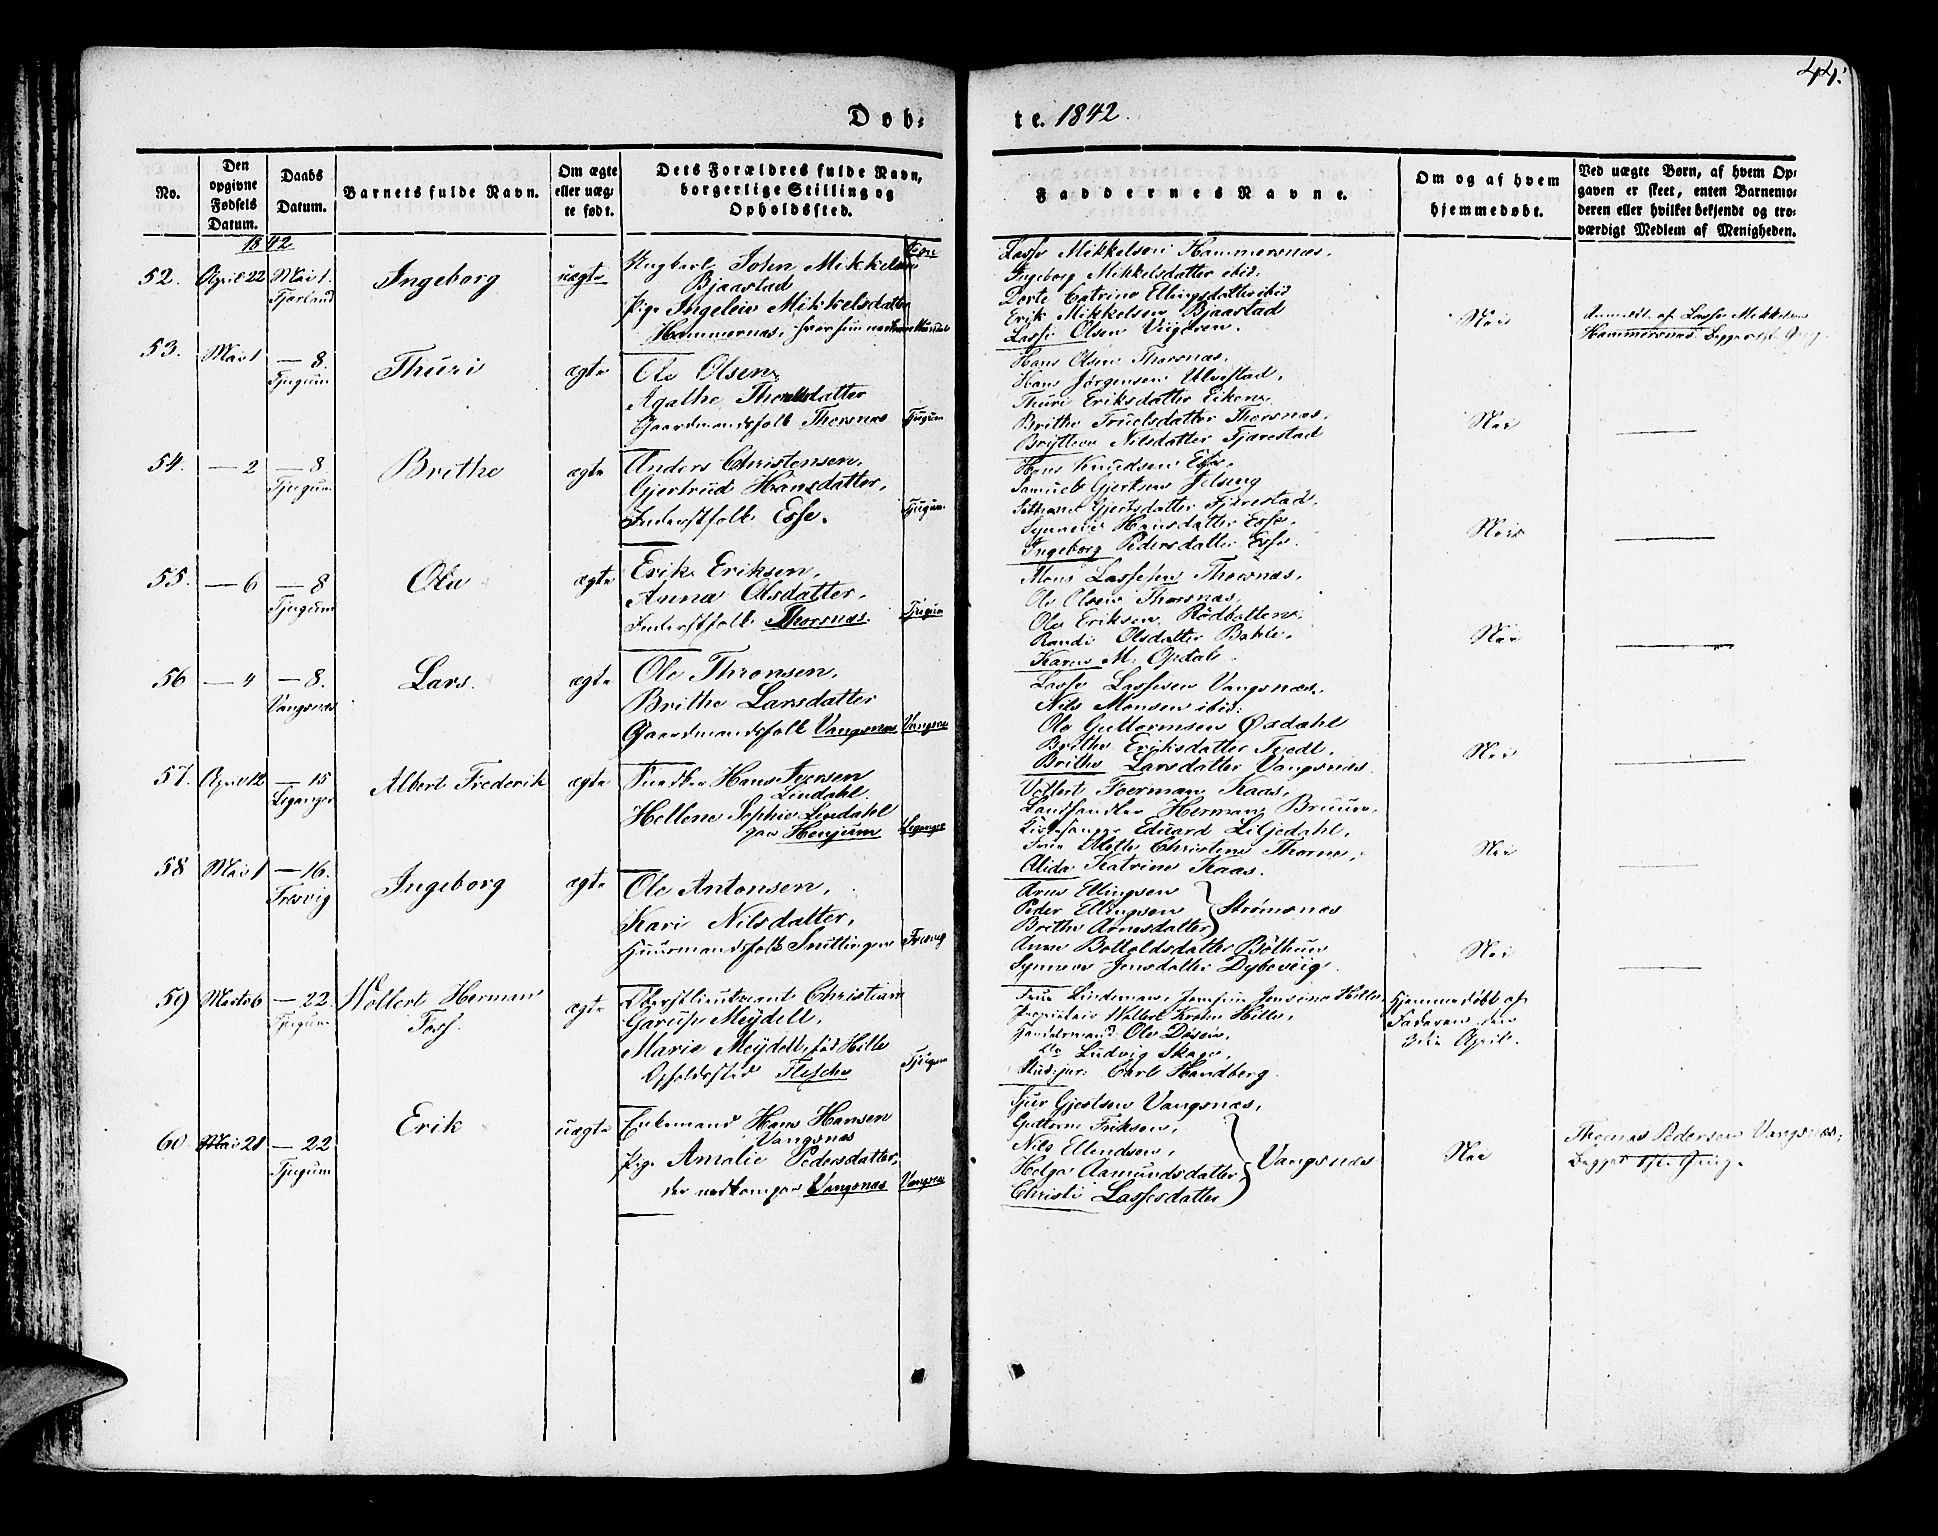 44.
Døb- te. 1842.
No.
Den opgivne Fødsels Datum.
Daabs Datum.
Barnets fulde Navn.
Om ægte eller uæg- te født.
Dets Forældres fulde Navn, borgerlige Stilling og Opholdssted.
Faddernes Navne.
Om og af hvem hjemmedøbt.
Ved uægte Børn, af hvem Op- gaven er skeet, enten Barnemo- deren eller hvilket bekjendt og tro- værdigt Medlem af Menigheden.
1842
52. April 22 Mai 1. Ingeborg uægte Ungkarl John Mikkelsen
Fjærland
Bjaastad
Pige Ingeleiv Mikkelsdatter
Hammersnæs, hvor hun
Lasse Mikkelsen Hammersnæs,
Ingeborg Mikkelsdatter ibid.
Dorte Catrine Ellingsdatter ibid
Erik Mikkelsen Bjaastad
Lasse Olsen
Nei
Anmeldt af Lasse Mikkelsen
Hammersnæs
53. Mai 1 — 8. Thuri ægte Ole Olsen,
Tjugum
Agathe
Gaardmandsfolk Thorsnæs Tjugum
Hans Olsen Thorsnæs,
Hans Jørgensen Ulvestad,
Thuri Eriksdatter
Brithe Truelsdatter Thorsnæs,
Nilsdatter Fjærestad
Nei
54. — 2 — 8. Brithe ægte Anders Christensen,
Tjugum
Gjertrud Hansdatter,
Inderstfolk Esse. Tjugum
Hans Knudsen Esse,
Samuel Gjertsen
Gjertsdatter Fjærestad,
Hansdatter Esse,
Ingeborg Pedersdatter Esse.
Nei
55. — 6 — 8 Ole ægte Erik Eriksen,
Tjugum
Anna Olsdatter,
Inderstfolk Thorsnæs. Tjugum
Mons Lassesen Thorsnæs,
Ole Olsen Thorsnæs,
Ole Eriksen
Randi Olsdatter
Karen M. Opdal.
Nei
56 — 4 — 8. Lars. ægte Ole Thronsen,
Vangsnæs
Brithe Larsdatter
Gaardmandsfolk Vangsnæs Vangsnæs
Lasse Lassesen Vangsnæs,
Nils Monsen ibid.
Ole Guttormsen
Brithe Eriksdatter Tvedt,
Brithe Larsdatter Vangsnæs
Nei
57. April 12 — 15 Albert Frederik ægte Snedker Hans
Leganger
Lindahl
Hellene Sophie Lindahl
paa Henjum Leganger
Vollert Foerman Kaas,
Landhandler Herman Bruun,
Kirkesanger Eduard Liljedahl,
Christene
Alida Katrine Kaas.
Nei
58 Mai 1 — 16. Ingeborg ægte Ole Antonsen,
Fresvig
Kari Nilsdatter,
Huusmandsfolk Fresvig
Arne Ellingsen
Peder Ellingsen Strømsnæs
Brithe Arnesdatter
Anne Botholdsdatter Bøthun
Synneva Jensdatter
Nei
59 Marts 6 — 22. Wollert Herman ægte Oberstlieutenant Christian
Tjugum
Garup Meydell,
Marie Meydell, fød Hille
Opholdssted Flesche Tjugum
Fru Lindeman, Jomfru Jensine Hille,
Proprietair Wollert Krohn Hille,
Handelsmand Ole
Ludvig
Carl Handberg.
Hjemmedøbt af
Faderen den
3die April.
60. Mai 21 — 22 Erik uægte Enkemand Hans Hansen
Tjugum
Vangsnæs
Pige Amalie Pedersdatter,
Vangsnæs Vangsnæs
Sjur Gjertsen Vangsnæs,
Guttorm Eriksen,
Nils Ellendsen,
Helga Aamundsdatter, Vangsnæs
Christi Lassesdatter
Nei
Thomas Pedersen Vangsnæs,